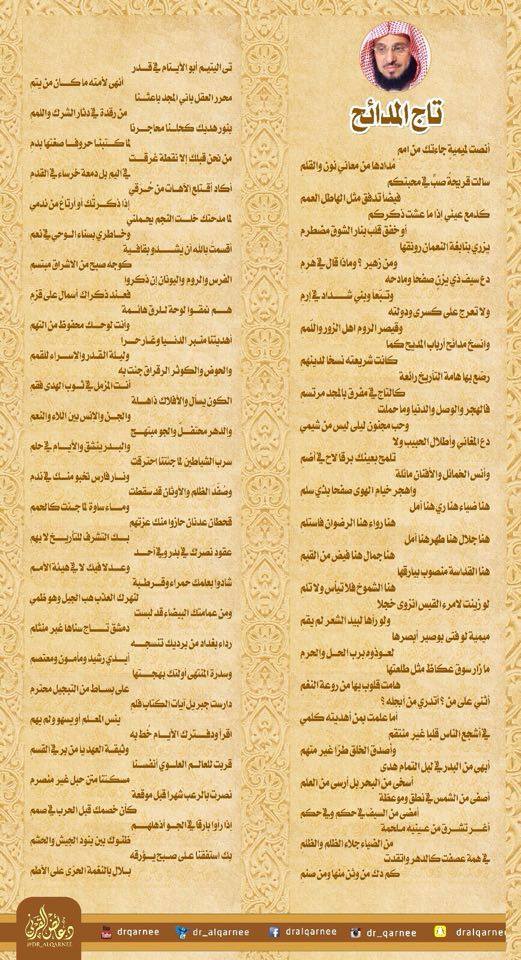 تاج المدائح
أنصت لميمية جاءتك من امم
مدادها من معاني نون والقلم
سالت قريحة صب في محبتكم
فيضا تدفق مثل الهاطل العمم
كالدمع عيني اذا ما عشت ذكركم
أو خفق قلب بنار الشوق مضطرم
يزري بنابغة النعمان رونقها
ومن زهير ؟ وماذا قال في هرم
دع سيف ذي يزن صفحا ومادحه
وتبعا وبني شداد في إرم
ولا تعرج على كسرى ودولته
وقيصر الروم اهل الزور واللمم
وانسخ مدائح أرباب المديح كما
كانت شريعته نسخا لدينهم
رصع بها هامة التأريخ رائعة
كالتاج في مفرق بالمجد مرتسم
فالهجر والوصل والدنيا وما حملت
وحب مجنون ليلى ليس من شيمي
دع المغاني وأطلال الحبيب ولا
تلمح بعينك برقا لاح في أضم
وأنس الخمائل والأفنان مائلة
واهجر خيام الهوى صفحا بذي سلم
هنا ضياء هنا ري هنا أمل
هنا رواء هنا الرضوان فاستلم
هنا جلال هنا طهر هنا أمل
هنا جمال هنا فيض من القيم
هنا القداسة منصوب بيارقها
هنا الشموخ فلا تيأس ولا تلم
لو زينت لامرء القيس انزوى خجلا
ولو رآها لبيد الشعر لم يقم
ميمية لو فتى بوصير أبصرها
لعوذوه برب الحل والحرم
ما زار سوق عكاظ مثل طلعتها
هامت قلوب بها من روعة النغم
أثني على من ؟ أتدري من أبجله ؟
أما علمت بمن أهديته كلمي
في أشجع الناس قلبا غير منتقم
وأصدق الخلق طرا غير متهم
أبهى من البدر في ليل التمام هدى
أسخى من البحر بل أرسى من العلم
أصفى من الشمس في نطق وموعظة
أمضى من السيف في حكم وفي حكم
أغر تشرق من عينيه ملحمة
من الضياء جلاء الظلم والظلم
في همة عصفت كالدهر واتقدت
كم دك من وثن منها ومن صنم
فتى اليتيم أبو الأيتام في قدر
أنهى لأمته ما كان من يتم
محرر العقل باني المجد باعثنا
من رقدة في دثار الشرك واللمم
بنور هديك كحلنا محاجرنا
لما كتبنا حروفا صغتها بدم
من نحن قبلك إلا نقطة غرقت
في اليم بل دمعة خرساء في القدم
أكاد أقتلع الآهات من حرقي
إذا ذكرتك أو أرتاع من ندمي
لما مدحتك خلت النجم يحملني
وخاطري بسناء الوحي في نعم
أقسمت بالله ان يشدو بقافية
كوجه صبح من الاشراق مبتسم
الفرس والروم واليونان إن ذكروا
فعند ذكراك أسمال على قزم
هم نمقوا لوحة للرق هائمة
وأنت لوحك محفوظ من التهم
أهديتنا منبر الدنيا وغار حرا
وليلة القدر والاسراء للقمم
والحوض والكوثر الرقراق جئت به
أنت المزمل في ثوب الهدى فقم
الكون يسأل والأفلاك ذاهلة
والجن والانس بين اللاء والنعم
والدهر محتفل والجو مبتهج
والبدر ينشق والأيام في حلم
سرب الشياطين لما جئتنا احترقت
ونار فارس تخبو منك في ندم
وصفد الظلم والأوثان قد سقطت
وماء ساوة لما جئت كالحمم
قحطان عدنان حازوا منك عزتهم
بك التشرف للتأريخ لا بهم
عقود نصرك في بدر وفي أحد
وعدلا فيك لا في هيئة الأمم
شادوا بعلمك حمراء وقرطبة
لنهرك العذب هب الجيل وهو ظمي
ومن عمامتك البيضاء قد لبست
دمشق تاج سناها غير منثلم
رداء بغداد من برديك تنسجه
أيدي رشيد ومأمون ومعتصم
وسدرة المنتهى أولتك بهجتها
على بساط من التبجيل محترم
دارست جبريل آيات الكتاب فلم
ينس المعلم أو يسهو ولم يهم
اقرأ ودفترك الأيام خط به
وثيقة العهد يا من بر في القسم
قربت للعالم العلوي أنفسنا
مسكتنا متن حبل غير منصرم
نصرت بالرعب شهرا قبل موقعة
كأن خصمك قبل الحرب في صمم
إذا رأوا بارقا في الجو أذهلهم
ظنوك بين بنود الجيش والحشم
بك استفقنا على صبح يؤرقه
بلال بالنغمة الحرى على الأطم
د. عائض القرني
@DR_ALQARNEE
drqarnee
dr_alqarnee
dralqarnee
dr_qarnee
dralqarnee